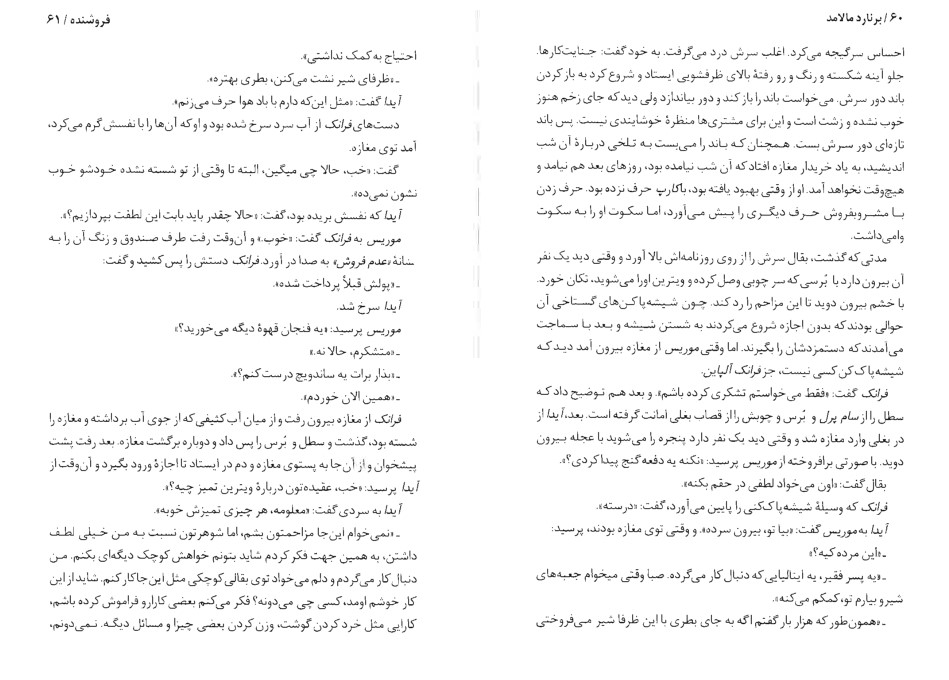 ۶۰ / برنارد مالامد
احساس سرگیجه می‌کرد. اغلب سرش درد می‌گرفت. به خود گفت: جنایت‌کارها.
جلو آینه شکسته و رنگ و رو رفتهٔ بالای ظرفشویی ایستاد و شروع کرد به باز کردن
باند دور سرش. می‌خواست باند را باز کند و دور بیاندازد ولی دید که جای زخم هنوز
خوب نشده و زشت است و این برای مشتری‌ها منظرهٔ خوشایندی نیست. پس باند
تازه‌ای دور سرش بست. همچنان که باند را می‌بست به تلخی دربارهٔ آن شب
اندیشید، به یاد خریدار مغازه افتاد که آن شب نیامده بود، روزهای بعد هم نیامد و
هیچ‌وقت نخواهد آمد. او از وقتی بهبود یافته بود، با کارپ حرف نزده بود. حرف زدن
با مشروبفروش حرف دیگری را پیش می‌آورد، اما سکوت او را به سکوت
وامی‌داشت.
مدتی که گذشت، بقال سرش را از روی روزنامه‌اش بالا آورد و وقتی دید یک نفر
آن بیرون دارد با بُرسی که سر چوبی وصل کرده و ویترین او را می‌شوید، تکان خورد.
با خشم بیرون دوید تا این مزاحم را رد کند. چون شیشه‌پاکن‌های گستاخی آن
حوالی بودند که بدون اجازه شروع می‌کردند به شستن شیشه و بعد با سماجت
می‌آمدند که دستمزدشان را بگیرند. اما وقتی موریس از مغازه بیرون آمد دید که
شیشه‌پاک‌کن کسی نیست، جز فرانک آلپاین.
فرانک گفت: «فقط می‌خواستم تشکری کرده باشم». و بعد هم توضیح داد که
سطل را از سام پرل و بُرس و چوبش را از قصاب بغلی امانت گرفته است. بعد، آیدا از
در بغلی وارد مغازه شد و وقتی دید یک نفر دارد پنجره را می‌شوید با عجله بیرون
دوید. با صورتی برافروخته از موریس پرسید: «نکنه یه دفعه گنج پیدا کردی؟».
بقال گفت: «اون می‌خواد لطفی در حقم بکنه».
فرانک که وسیلهٔ شیشه‌پاک‌کنی را پایین می‌آورد، گفت: «درسته».
آیدا به موریس گفت: «بیا تو، بیرون سرده». و وقتی توی مغازه بودند، پرسید:
ـ «این مرده کیه؟»
ـ «یه پسر فقیر، یه ایتالیایی که دنبال کار می‌گرده. صبا وقتی میخوام جعبه‌های
شیرو بیارم تو، کمکم می‌کنه».
ـ «همون‌طور که هزار بار گفتم اگه به جای بطری با این ظرفا شیر می‌فروختی
فروشنده / ۶۱
احتیاج به کمک نداشتی».
ـ «ظرفای شیر نشت می‌کنن، بطری بهتره».
آیدا گفت: «مثل این‌که دارم با باد هوا حرف می‌زنم».
دست‌های فرانک از آب سرد سرخ شده بود و او که آن‌ها را با نفسش گرم می‌کرد،
آمد توی مغازه.
گفت: «خب، حالا چی میگین، البته تا وقتی از تو شسته نشده خودشو خوب
نشون نمی‌ده».
آیدا که نفسش بریده بود، گفت: «حالا چقدر باید بابت این لطفت بپردازیم؟».
موریس به فرانک گفت: «خوب.» و آن‌وقت رفت طرف صندوق و زنگ آن را به
نشانهٔ «عدم فروش» به صدا در آورد. فرانک دستش را پس کشید و گفت:
ـ «پولش قبلاً پرداخت شده».
آیدا سرخ شد.
موریس پرسید: «یه فنجان قهوهٔ دیگه می‌خورید؟»
ـ «متشکرم، حالا نه.»
ـ «بذار برات یه ساندویچ درست کنم؟».
ـ «همین الان خوردم».
فرانک از مغازه بیرون رفت و از میان آب کثیفی که از جوی آب برداشته و مغازه را
شسته بود، گذشت و سطل و بُرس را پس داد و دوباره برگشت مغازه. بعد رفت پشت
پیشخوان و از آن جا به پستوی مغازه و دم در ایستاد تا اجازهٔ ورود بگیرد و آن‌وقت از
آیدا پرسید: «خب، عقیده‌تون دربارهٔ ویترین تمیز چیه؟».
آیدا به سردی گفت: «معلومه، هر چیزی تمیزش خوبه».
ـ «نمی‌خوام این‌جا مزاحمتون بشم، اما شوهرتون نسبت به من خیلی لطف
داشتن، به همین جهت فکر کردم شاید بتونم خواهش کوچک دیگه‌ای بکنم. من
دنبال کار می‌گردم و دلم می‌خواد توی بقالی کوچکی مثل این جا کار کنم. شاید از این
کار خوشم اومد، کسی چی می‌دونه؟ فکر می‌کنم بعضی کارارو فراموش کرده باشم،
کارایی مثل خرد کردن گوشت، وزن کردن بعضی چیزا و مسائل دیگه. نمی‌دونم،